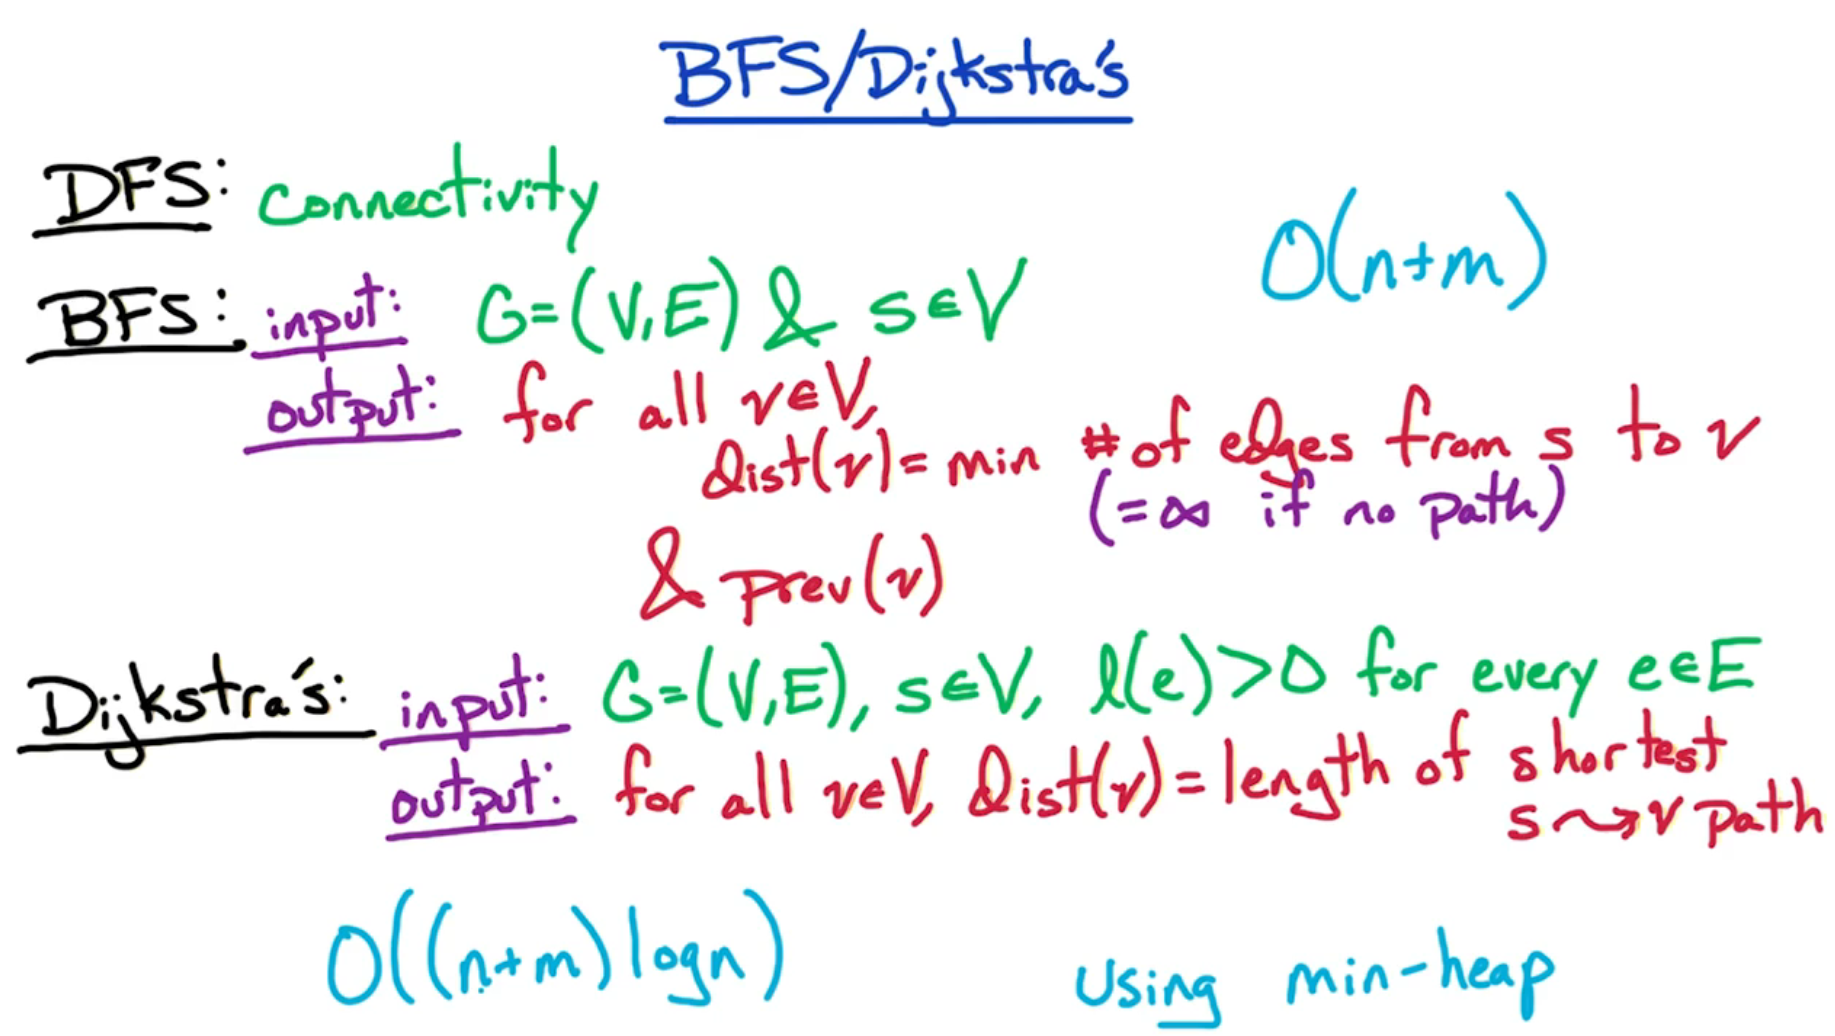 BFS/Dijkstra's
DFS: connectivity
O(n+m)
BFS: input: G=(V,E) & s∈V
output: for all v∈V,
dist(v)= min # of edges from s to v
(=∞ if no path)
& prev(v)
Dijkstra's: input: G=(V,E), s∈V, l(e)>0 for every e∈E
output: for all v∈V, dist(v)= length of shortest
s⇝v path
O((n+m)logn)
using min-heap